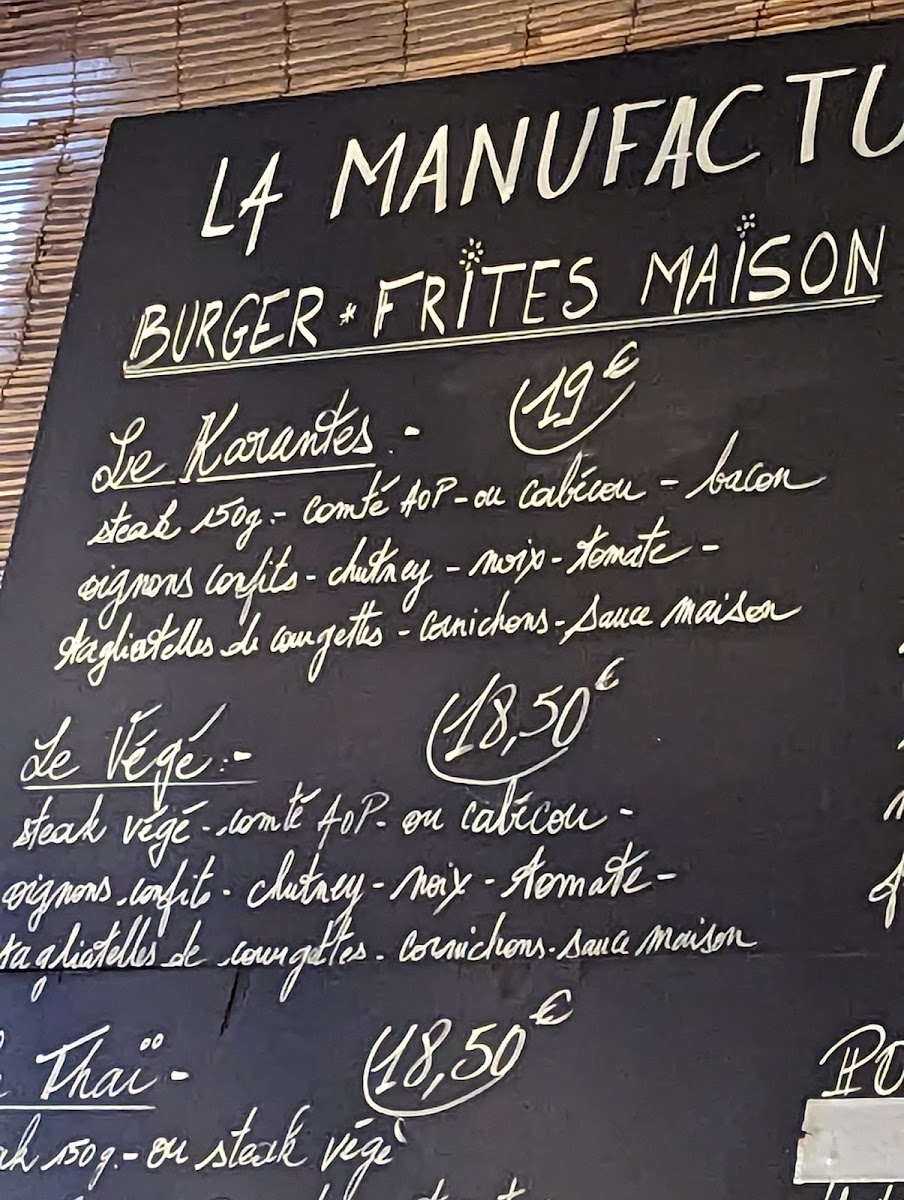 LA MANUFACTU
BURGER * FRITES MAISON
Le Karantes .- 19€
steak 150g.- comté AOP - ou cabécou - bacon
oignons confits - chutney - noix - tomate -
tagliatelles de courgettes - cornichons - sauce maison
Le Végé :- 18,50€
steak végé - comté AOP - ou cabécou -
oignons confit - chutney - noix - tomate -
tagliatelles de courgettes - cornichons - sauce maison
Thaï - 18,50€
150g.- ou steak végé
PO